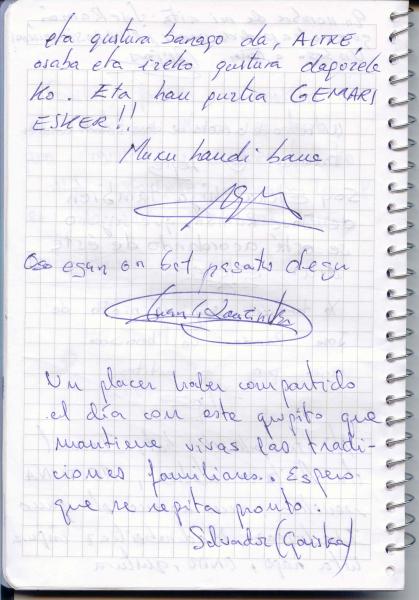 eta gustura banago da, AITXE,
osaba eta izeko gustura dagozela
ko. Eta hau guztia GEMARI
ESKER!!
Muxu haundi bana
Oso egun on bat pasatu degu
Un placer haber compartido
el día con este grupito que
mantiene vivas las tradi-
ciones familiares. Espero
que se repita pronto.
Salvador (Gaizka)